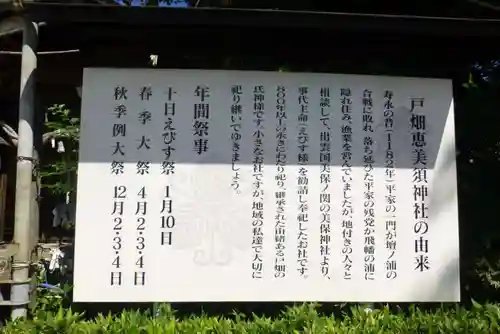 戸畑恵美須神社の由来
寿永の昔(1183年)平家の一門が壇ノ浦の
合戦に敗れ、落ち延びた平家の残党が飛幡の浦に
隠れ住み、漁業を営んでいましたが、地付きの人々と
相談して、出雲国美保ノ関の美保神社より、
事代主命(えびす様)を勧請し奉祀したお社です。
800年以上の永きにわたり祀り、継承された由緒ある戸畑の
氏神様です。小さなお社ですが、地域の私達で大切に
祀り継いでゆきましょう。
年間祭事
十日えびす祭 1月10日
春季大祭 4月2・3・4日
秋季例大祭 12月2・3・4日